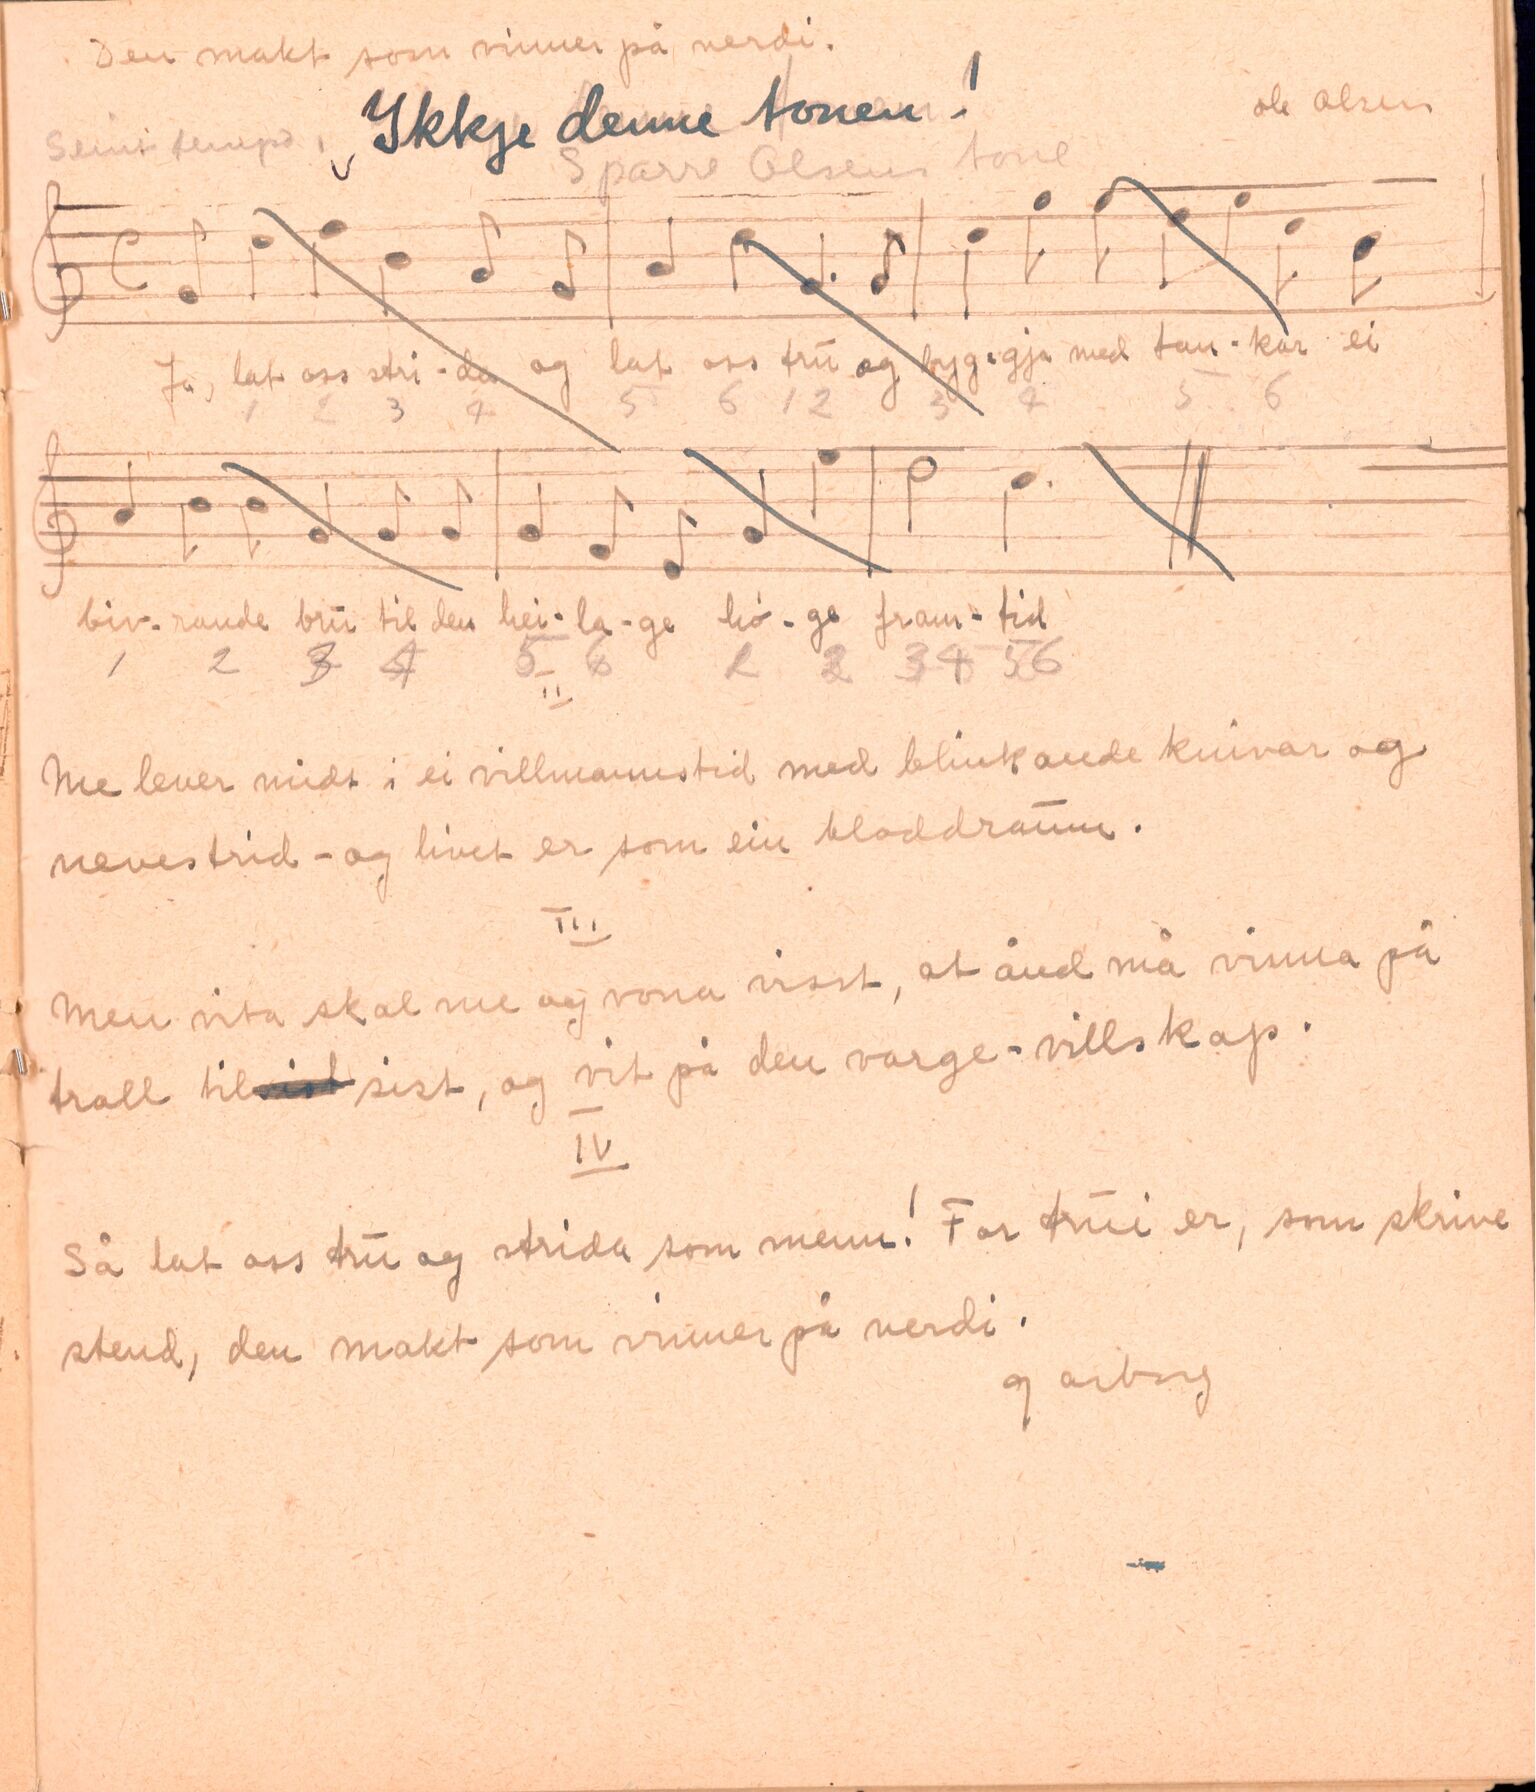 Den makt som vinner på verdi.
Ikkje denne tonen!
Ole Olsen
Seint tempo.
Sparre Olsens tone
Ja, lat oss stri-da og lat oss trū og byg-gja med tan-kar ei
1 2 3 4 5 6 1 2 3 4 5 6
biv-rande brū til den hei-la-ge hó-ge fram-tid
1 2 3 4 5 6 1 2 3 4 5 6
II
Me lever midt i ei villmannstid med blinkande knivar og
nevestrid - og livet er som ein bloddraūm.
III
Men vita skal me og vona visst, at ånd må vinna på
troll til sist, og vit på den varge-villskap.
IV
Så lat oss trū og strida som menn! For trūi er, som skrive
stend, den makt som vinner på verdi.
garborg